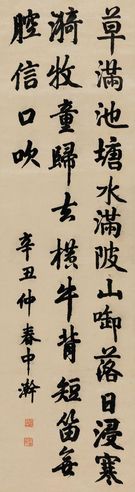 草滿池塘水滿陂山啣落日浸寒
漪牧童歸去橫牛背短笛無
腔信口吹
辛丑仲春中澣